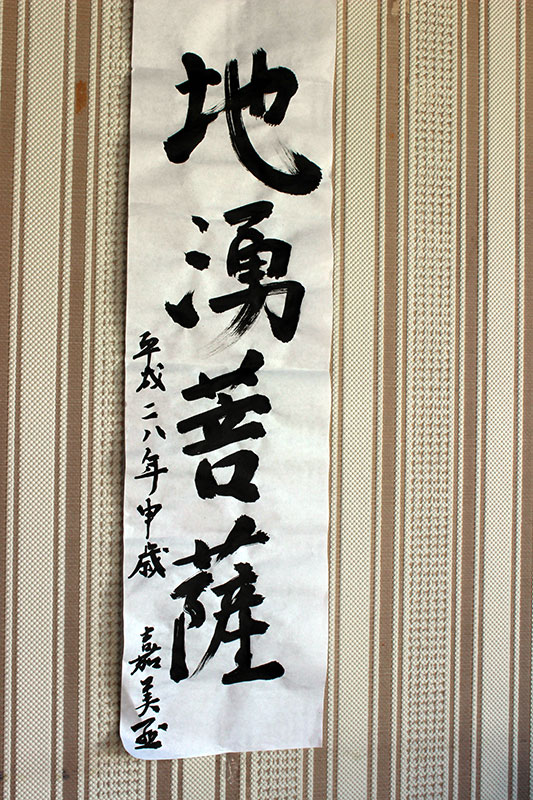 地湧菩薩
平成二八年申歳
嘉美